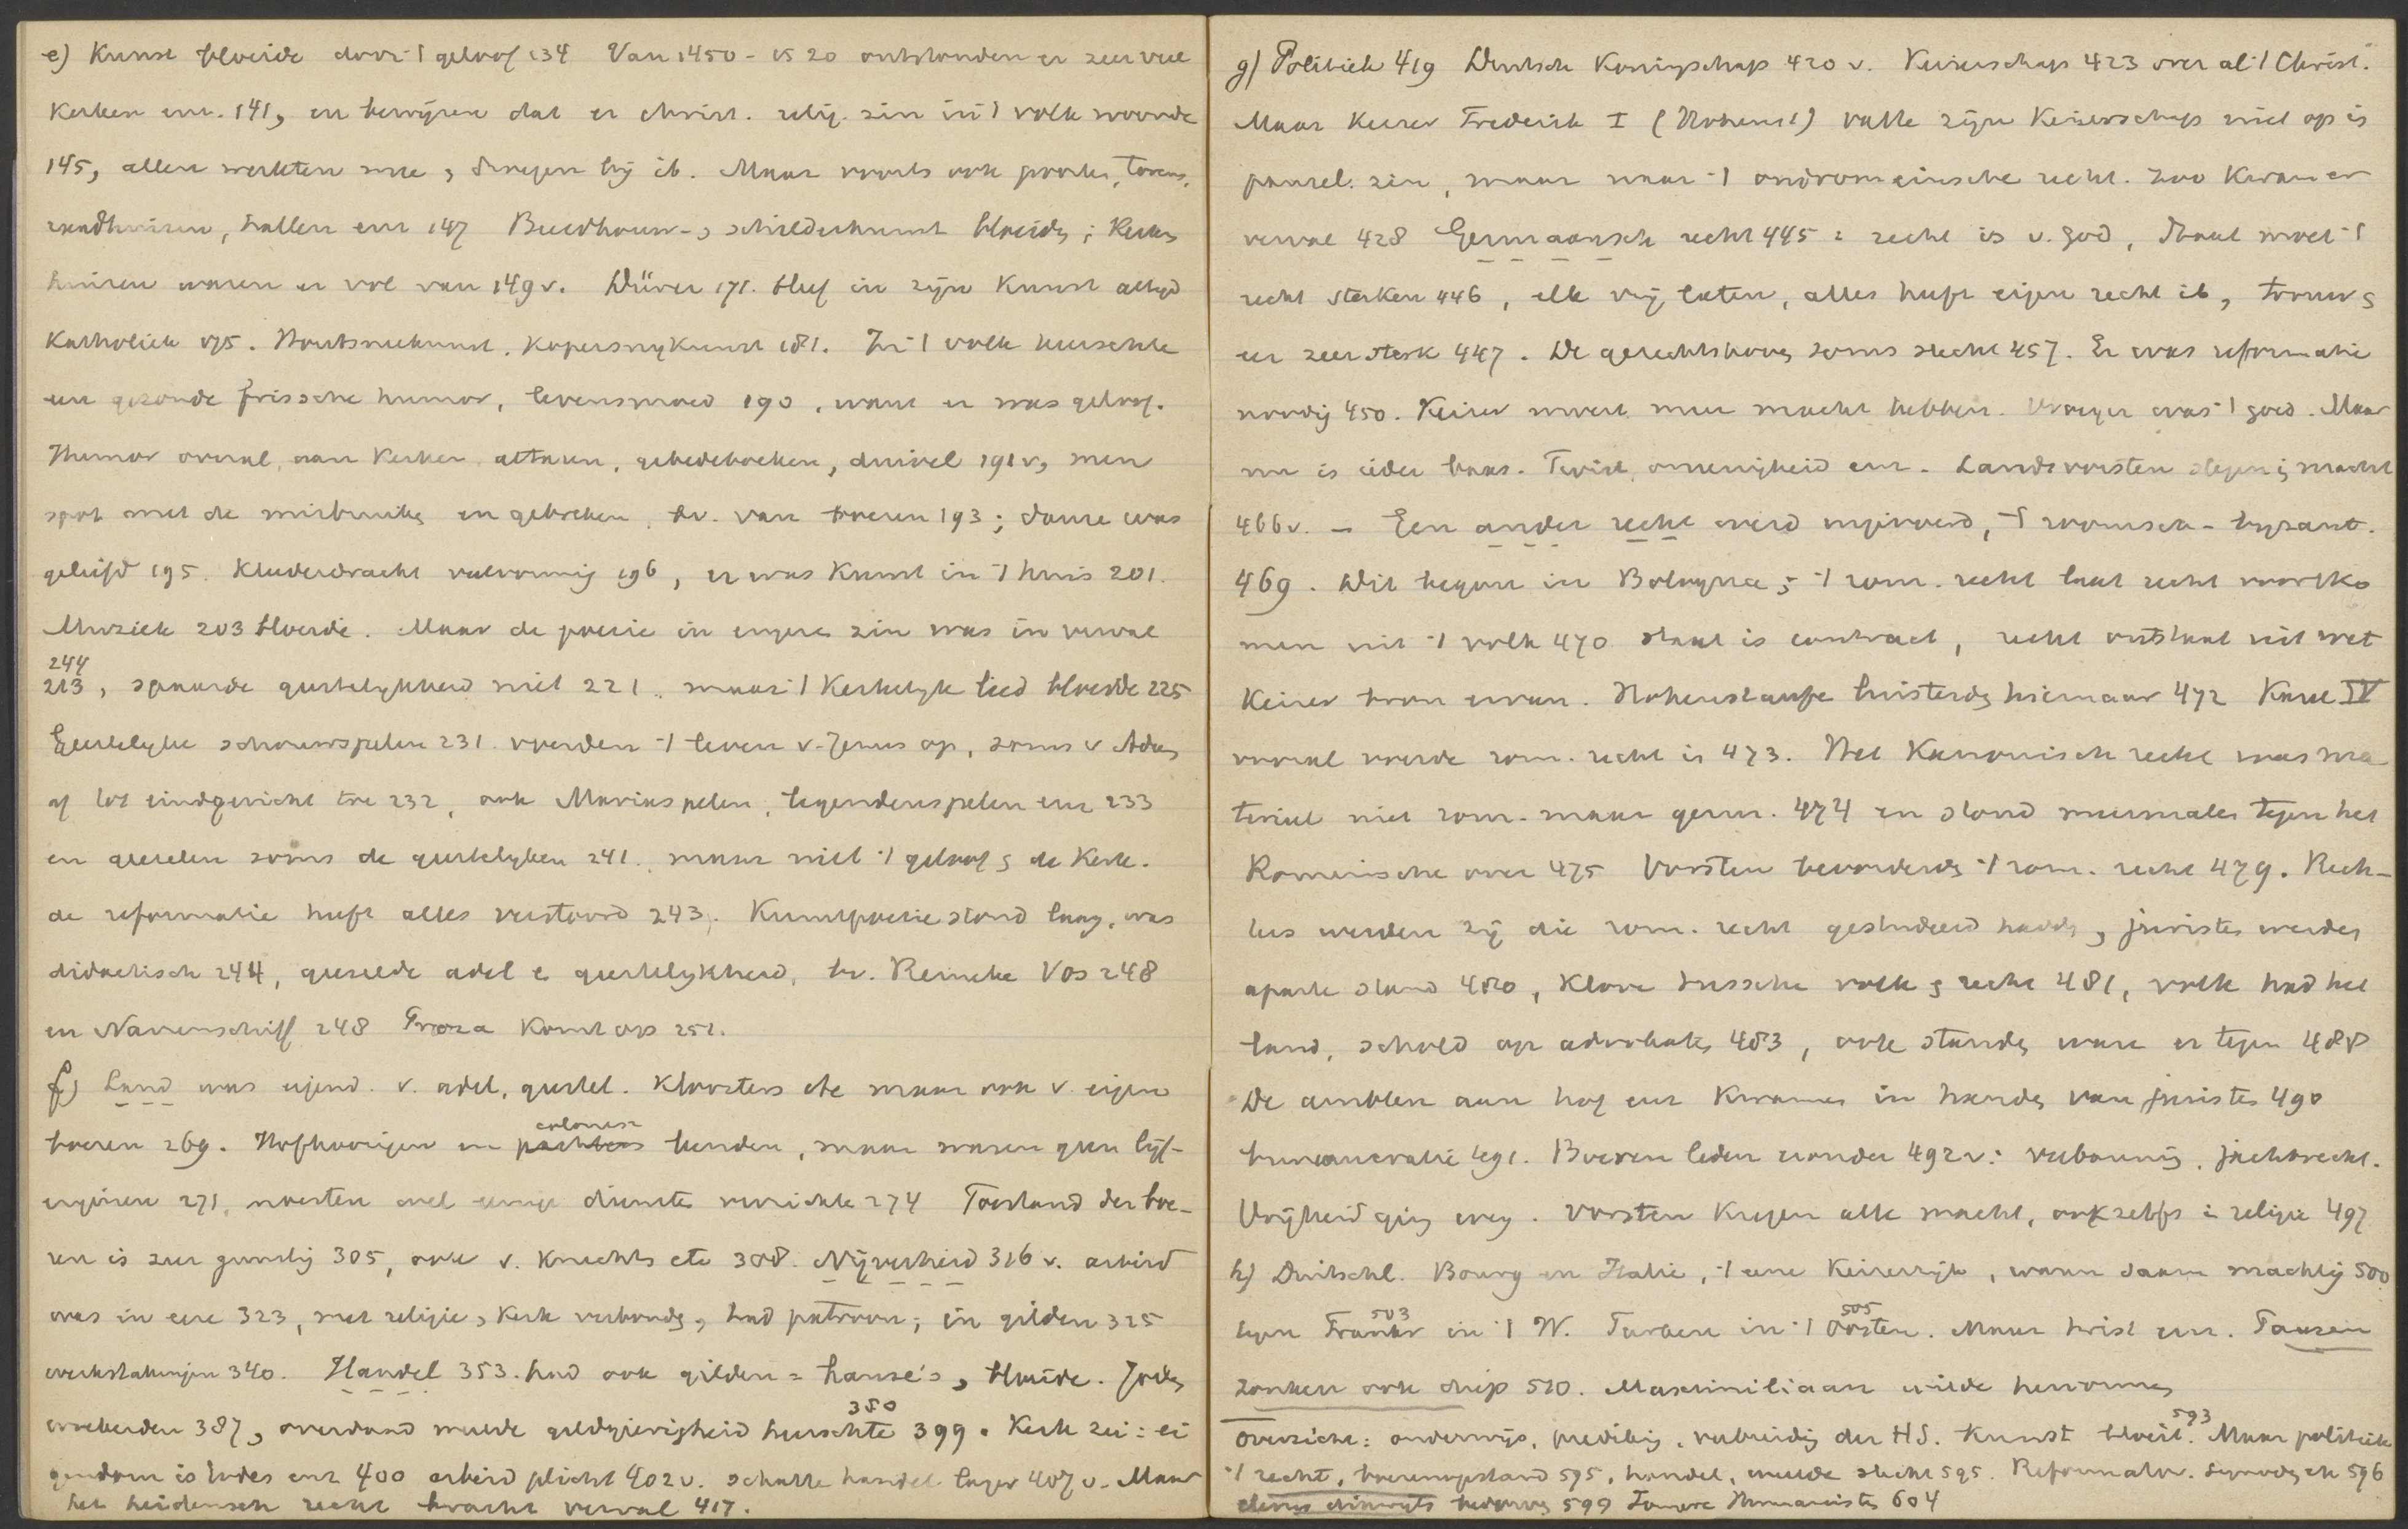 e) Kunst bloeide door 't geloof 134 Van 1450 - 1520 ontstonden er zeer veel
kerken enz. 141, en bewijzen dat er christ. relig. zin in 't volk woonde
145, allen werkten mee, droegen bij ib. Maar voorts ook poorten, torens,
raadhuizen, hallen enz 147 Beeldhouw- , schilderkunst bloeide; Kerken
huizen waren er vol van 149 v. Dürer 171. bleef in zijn Kunst altijd
Katholiek 175. Houtsneekunst, kopersnykunst 181. In 't volk heerschte
een gezonde frissche humor, levensmoed 190, want er was geloof.
Humor overal, aan Kerken altaren, gebedeboeken, duivel 191 v, men
spot met de misbruiken en gebreken, bv. van boeren 193; danse was
geliefd 195. Kleederdracht veelvormig 196, er was Kunst in 't huis 201.
Muziek 203 bloeide. Maar de poezie in engeren zin was in verval
244
213, spaarde geestelykheid niet 221, maar 't Kerkelyke lied bloeide 225
Geestelyke schouwspelen 231 voerden 't leven v. Jezus op, soms v Adam
af tot eindgericht toe 232, ook Mariaspelen, legendenspelen enz 233
en geeselen soms de geestelyken 241, maar niet 't geloof , de Kerk.
de reformatie heeft alles verstoord 243. Kunstpoezie stond laag, was
didactisch 244, geeselde adel e geestelykheid, bv. Reineke Vos 248
en Narrenschiff 248 Proza Komt op 251.
f) Land was eigend. v. adel, geestel. Kloosters etc maar ook v. eigen
colonen
boeren 269. Hofhoorigen en pachters, maar waren geen lijf-
eigenen 271, moesten wel eenige diensten verrichte 274 Toestand der boe-
ren is zeer gunstig 305, ook v. Knechts etc 308. Nijverheid 316 v. arbeid
was in eere 323, met religie, Kerk verbonden, had patroon; in gilden 325
werkstakingen 340. Handel 353. had ook gilden = hanze's, bloeide. Joden
380
woekerden 387, overdaad weelde geldgierigheid heerschte 399. Kerk zei: ei
gendom is Godes enz 400 arbeid plicht 402 v. schatte handel lager 407 v. Maar
het heidensch recht bracht verval 417.
g) Politiek 419 Duitsch Koningschap 420 v. Keizerschap 423 over al 't Christ.
Maar Keizer Frederik I (Hohenst) vatte zijn Keizerschap niet op in
pausel. zin, maar naar 't oudromeinsche recht. Zoo Kwam er
verval 428 Germaansch recht 445 : recht is v. God, Staat moet 't
recht sterken 446, elk vrij laten, alles heeft eigen recht ib, trouw ,
eer zeer sterk 447. De gerechtshoven soms slecht 457. Er was reformatie
noodig 450. Keizer moest meer macht hebben. Vroeger was 't goed. Maar
nu is ieder baas. Twist, oneenigheid enz. Landsvorsten stegen in macht
466 v. - Een ander recht werd ingevoerd, 't roomsch-byzant.
469. Dit begon in Bologna; 't rom. recht laat recht voortko
men uit 't volk 470 staat is contract, recht ontstaat uit wet
Keizer bron ervan. Hohenstaufe luisterden hiernaar 472 Karel IV
vooral voerde rom. recht in 473. Het Kanonisch recht was ma
terieel niet rom. maar germ. 474 en stond meermalen tegen het
Romeinsche over 475 Vorsten bevorderden 't rom. recht 479. Rech-
ters werden zij die rom. recht gestudeerd hadden, juristen werden
aparte stand 480, Klove tusschen volk , recht 481, volk had het
land, schold op advokaten 483, ook standen ware er tegen 488
De ambten aan hof enz Kwamen in handen van juristen 490
bureaucratie 491. Boeren leden eronder 492 v: jachtrecht.
Vrijheid ging weg. Vorsten Kregen alle macht, ook zelfs in religie 497
h) Duitschl. Bourg en Italie, 't eene Keizerrijk, waren saam machtig 500
503 505
tegen Frankr in 't W. Turken in 't Oosten. Maar twist enz. Pausen
zonken ook diep 520. Maximiliaan wilde hervormen
593
Overzicht: onderwijs, prediking, verbreiding der HS. Kunst bloeit. Maar politiek
't recht, boerenopstand 595, handel, weelde slecht 595. Reformatie. Synoden etc 596
hervorming 599 Jongere Humanisten 604